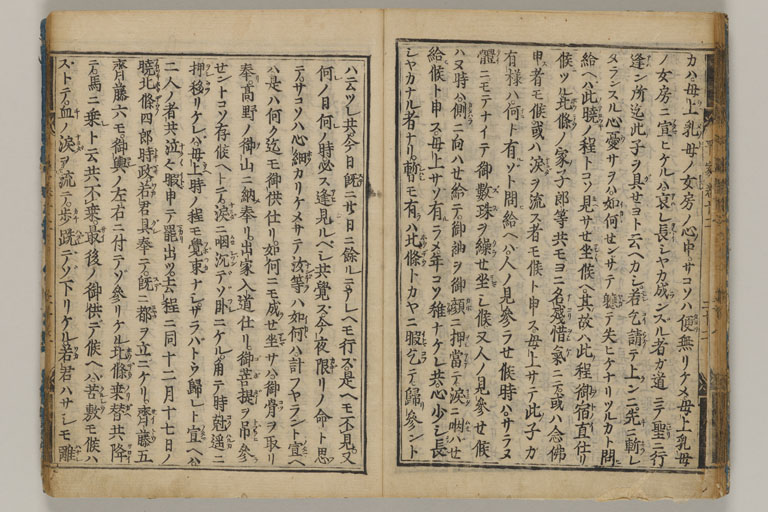 カハ母上乳母ノ女房ノ心中サコソハ便無リケメ母上乳母
ノ女房ニ宣ヒケルハ哀レ長シヤカ成ンスル者ガ道ニテ聖ニ行
逢ン所迄此子ヲ具セヨト云ヘカシ若乞請テ上ンニ先ニ斬レ
タランスル心憂サヲハ如何センサテ軈テ失ヒケナリツルカト問
給ヘハ此暁ノ程トコソ見サセ坐候ヘ其故ハ此程御宿直仕リ
候ツル北條ノ家子郎等共モヨニ名残惜氣ニテ或ハ念佛
申者モ候或ハ涙ヲ流ス者モ候ト申ス母上サテ此子カ
有様ハ何ト有ソト問給ヘハ人ノ見参ラセ候時ハサラヌ
體ニモテナイテ御數珠ヲ繰セ坐シ候又人ノ見参セ候
ハヌ時ハ側ニ向ハセ給テ御袖ヲ御顔ニ押當テ涙ニ咽ハセ
給候ト申ス母上サソ有ラメ年コソ稚ナケレ共心少シ長
シヤカナル者ナリ暫モ有ハ北條トカヤニ暇乞テ歸参ント
ハ云ツレ共今日既ニ廿日ニ餘ルニアレヘモ行ス是ヘモ不見又
何ノ日何ノ時必ス逢見ルベシ共覺ス今夜限リノ命ト思
テサコソハ心細カリケメサテ汝等ハ如何ハ計フヤラント宣ヘ
ハ是ハ何ク迄モ御供仕リ如何ニモ成セ坐サハ御骨ヲ取リ
奉高野ノ御山ニ納奉リ出家入道仕リ御菩提ヲ吊参
セントコソ存候ヘトテ涙ニ咽沈テソ臥ニケル角テ時尅遥ニ
押移リケレハ母上時ノ程モ覺束ナシサラハトウ歸レト宣ヘハ
二人ノ者共泣々暇申テ罷出ツ去程ニ同十二月十七日ノ
暁北條四郎時政若君具奉テ既ニ都ヲ立ニケリ齊藤五
齊藤六モ御輿ノ左右ニ付テソ参リケル北條乗替共降
テ馬ニ乗ト云共不乗最後ノ御供テ候ヘハ苦敷モ候ハ
ストテ血ノ涙ヲ流テ歩跣テソ下リケル若君ハサシモ離